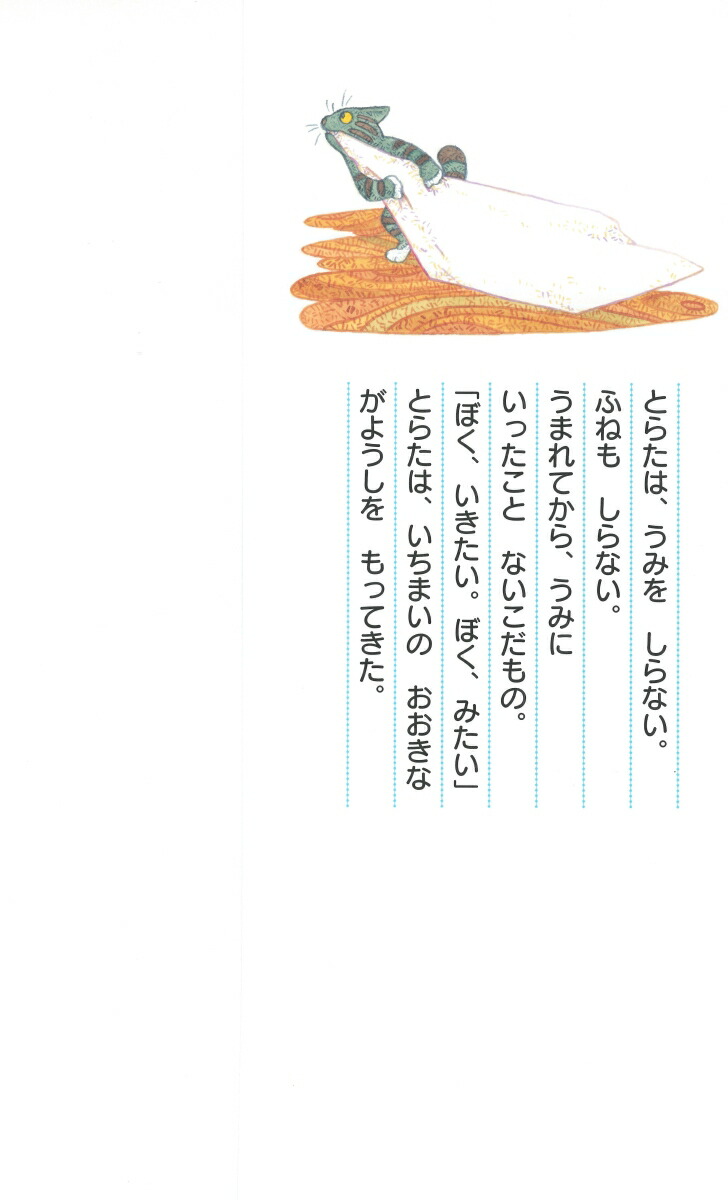 とらたは、うみを　しらない。
ふねも　しらない。
うまれてから、うみに
いったこと　ないこだもの。
「ぼく、いきたい。ぼく、みたい」
とらたは、いちまいの　おおきな
がようしを　もってきた。